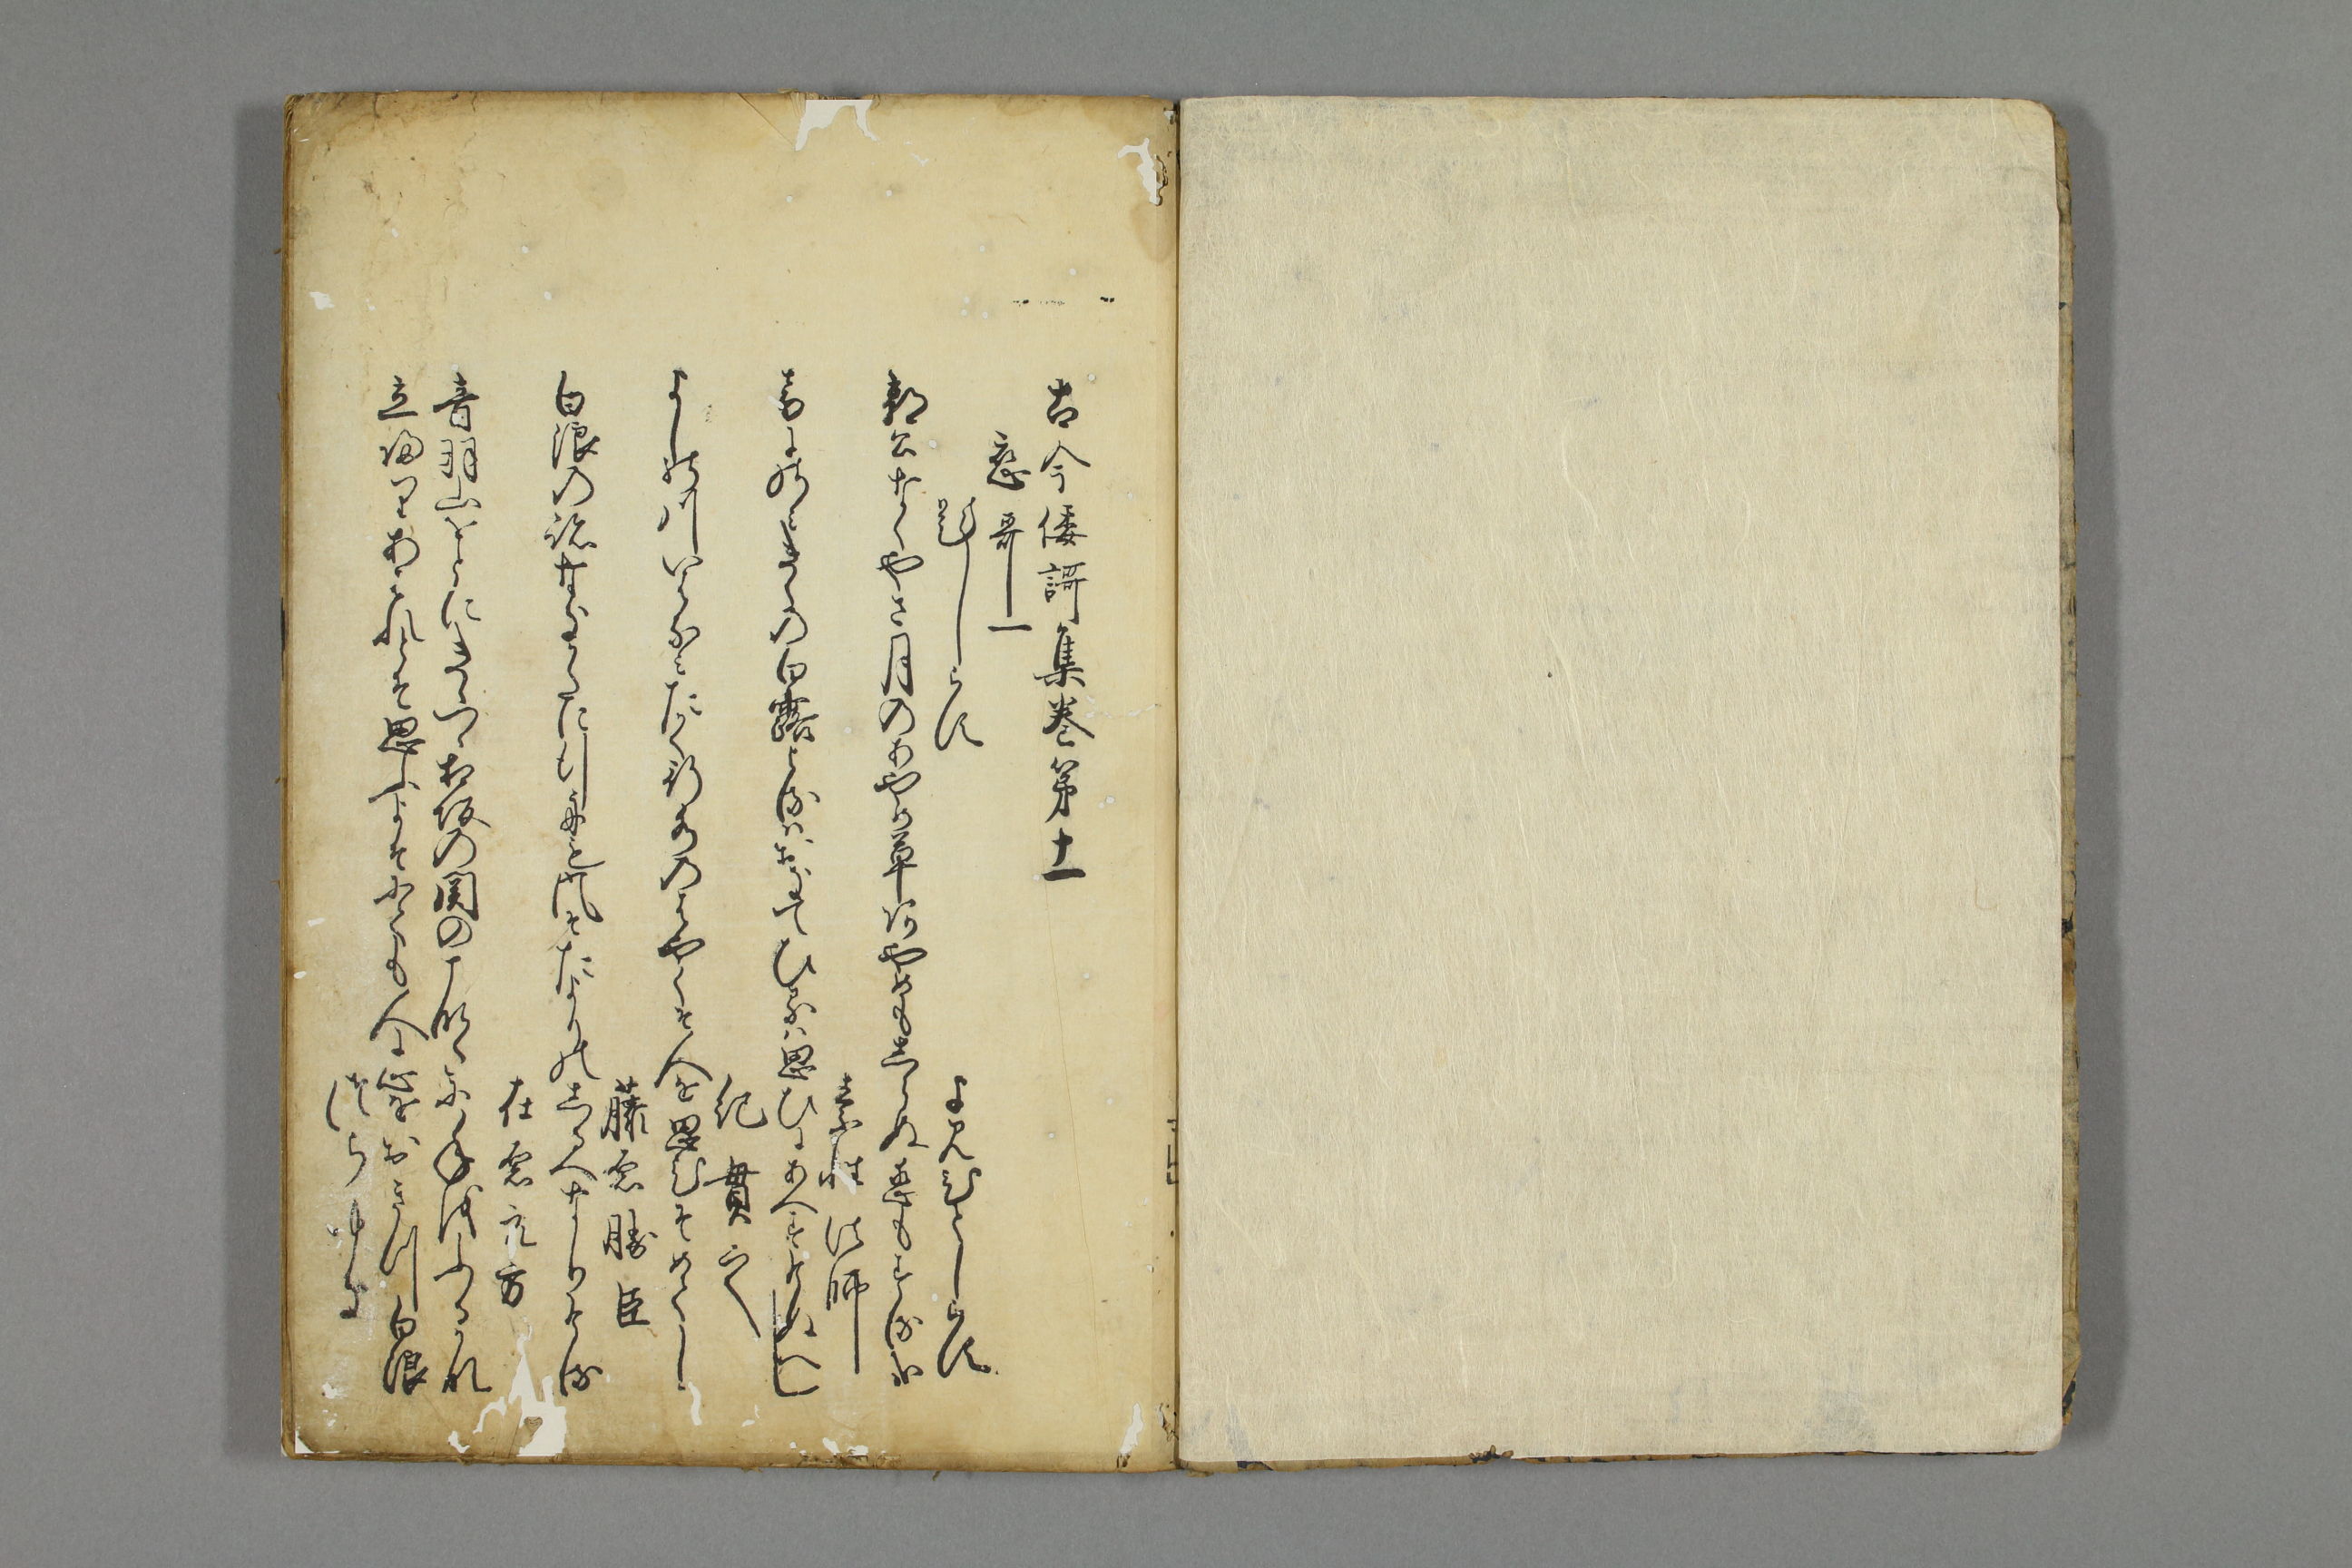 古今倭謌集巻第十一
恋哥一
題しらす
よみ人しらす
郭公なくやさ月のあやめ草あやめもしらぬ恋もする哉
素性法師
音にのみきくの白露よるはおきてひるは思ひにあへすけぬへし
紀貫之
よしの川いはなみたかく行水のはやくそ人を思ひそめてし
藤原勝臣
白浪の跡なきかたに行舟も風そたよりのしるへなりける
在原元方
音羽山をとにきゝつゝ相坂の関のこなたに年をふるかな
立帰りあはれとそ思ふよそにても人に心をおきつ白浪
つらゆき